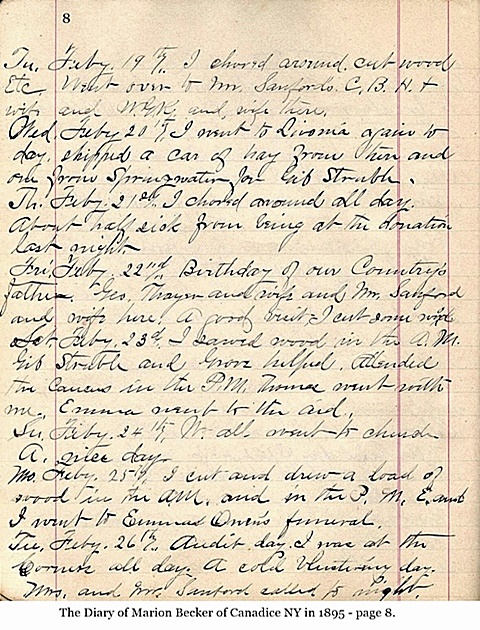 8
Tu, Feby. 19th, I chored around, cut wood
Etc. Went over to Mr. Sanfords. C. B. H. &
wife and W.G.K. and wife there.
Wed, Feby. 20th, I went to Livonia again to
day. shipped a car of hay from then and
one from Springwater for Gib Struble.
Th. Feby. 21st, I chored around all day.
About half sick from being at the donation
last night
Fri, Feby. 22nd, Birthday of our Country's
father. Geo. Thayer and wife and Mr. Sanford
and wife here. A good visit. I cut some wood
Sat Feby. 23d, I sawed wood in the A.M.
Gib Struble and Grove helped. Attended
the Caucus in the P.M. went with
me. Emma went to the aid.
Su, Feby. 24th, We all went to church
A. nice day
Mo. Feby. 25th, I cut and drew a load of
wood in the AM. and in the P. M. E. and
I went to Emmas Owen's funeral.
Tu, Feby. 26th, Audit day. I was at the
Corners all day. A cold blustering day.
Mrs. and Mr. Sanford called to night.
The Diary of Marion Becker of Canadice NY in 1895 - page 8.